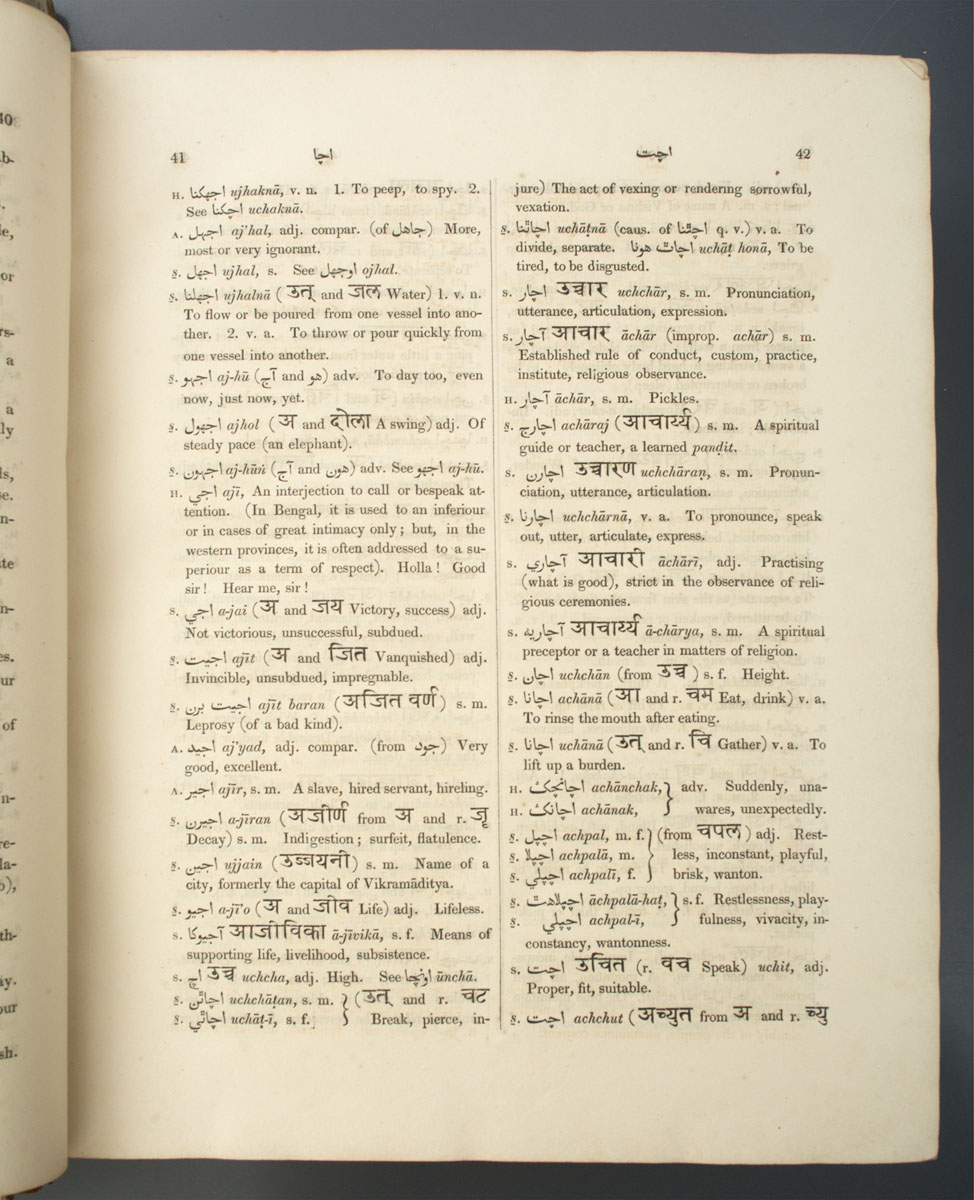 40
b-
.
e,
or
rs-
a
a
ly
ls,
se.
n-
te
n-
es.
ur
of
n-
re-
la-
o),
th-
ay.
our
sh.
41 اچا
H. اجهكنا ujhaknā, v. n. 1. To peep, to spy. 2.
See اچكنا uchaknā.
A. اجهل aj'hal, adj. compar. (of جاهل) More,
most or very ignorant.
S. اجهل ujhal, s. See اوجهل ojhal.
S. اجهلنا ujhalnā (उत् and जल Water) 1. v. n.
To flow or be poured from one vessel into ano-
ther. 2. v. a. To throw or pour quickly from
one vessel into another.
S. اجهو aj-hū (آج and هو) adv. To day too, even
now, just now, yet.
S. اجهول ajhol (अ and दोला A swing) adj. Of
steady pace (an elephant).
S. اجهون aj-hūṅ (آج and هون) adv. See اجهو aj-hū.
H. اجي ajī, An interjection to call or bespeak at-
tention. (In Bengal, it is used to an inferiour
or in cases of great intimacy only; but, in the
western provinces, it is often addressed to a su-
periour as a term of respect). Holla! Good
sir! Hear me, sir!
S. اجي a-jai (अ and जय Victory, success) adj.
Not victorious, unsuccessful, subdued.
S. اجيت ajīt (अ and जित Vanquished) adj.
Invincible, unsubdued, impregnable.
S. اجيت برن ajīt baran (अजित वर्ण) s. m.
Leprosy (of a bad kind).
A. اجيد aj'yad, adj. compar. (from جود) Very
good, excellent.
A. اجير ajīr, s. m. A slave, hired servant, hireling.
S. اجيرن a-jīran (अजीर्ण from अ and r. जॄ
Decay) s. m. Indigestion; surfeit, flatulence.
S. اجين ujjain (उज्जयनी) s. m. Name of a
city, formerly the capital of Vikramāditya.
S. اجيو a-jī'o (अ and जीव Life) adj. Lifeless.
S. آجيوكا आजीविका ā-jīvikā, s. f. Means of
supporting life, livelihood, subsistence.
S. اچ उच्च uchcha, adj. High. See اونچا ūnchā.
S. اچاٹن uchchāṭan, s. m. } (उत् and r. चट
S. اچاٹي uchāṭ-ī, s. f. } Break, pierce, in-
اچت 42
jure) The act of vexing or rendering sorrowful,
vexation.
S. اچاٹنا uchāṭnā (caus. of اچٹنا q. v.) v. a. To
divide, separate. اچاٹ هونا uchāṭ honā, To be
tired, to be disgusted.
S. اچار उच्चार uchchār, s. m. Pronunciation,
utterance, articulation, expression.
S. آچار आचार āchār (improp. achār) s. m.
Established rule of conduct, custom, practice,
institute, religious observance.
H. آچار āchār, s. m. Pickles.
S. اچارج achāraj (आचार्य्य) s. m. A spiritual
guide or teacher, a learned pandit.
S. اچارن उच्चारण uchchāraṇ, s. m. Pronun-
ciation, utterance, articulation.
S. اچارنا uchchārnā, v. a. To pronounce, speak
out, utter, articulate, express.
S. آچاري आचारी āchārī, adj. Practising
(what is good), strict in the observance of reli-
gious ceremonies.
S. آچاريه आचार्य्य ā-chārya, s. m. A spiritual
preceptor or a teacher in matters of religion.
S. اچان uchchān (from उच्च) s. f. Height.
S. اچانا achānā (आ and r. चम Eat, drink) v. a.
To rinse the mouth after eating.
S. اچانا uchānā (उत् and r. चि Gather) v. a. To
lift up a burden.
H. اچانچک achānchak, } adv. Suddenly, una-
H. اچانک achānak, } wares, unexpectedly.
S. اچپل achpal, m. f. } (from चपल) adj. Rest-
S. اچپلا achpalā, m. } less, inconstant, playful,
S. اچپلي achpalī, f. } brisk, wanton.
S. اچپلاهٹ āchpalā-haṭ, } s. f. Restlessness, play-
S. اچپلي achpal-ī, } fulness, vivacity, in-
constancy, wantonness.
S. اچت उचित (r. वच Speak) uchit, adj.
Proper, fit, suitable.
S. اچت achchut (अच्युत from अ and r. च्यु